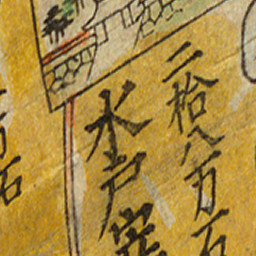 二拾八万石
水戸宰
万石